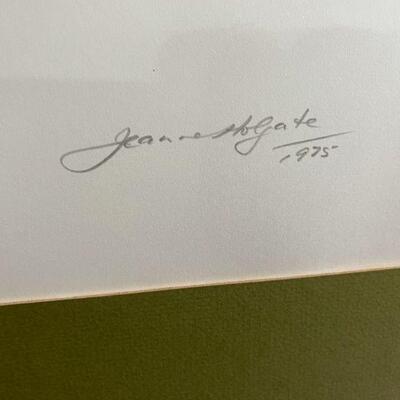 Jeanne Holgate
1975